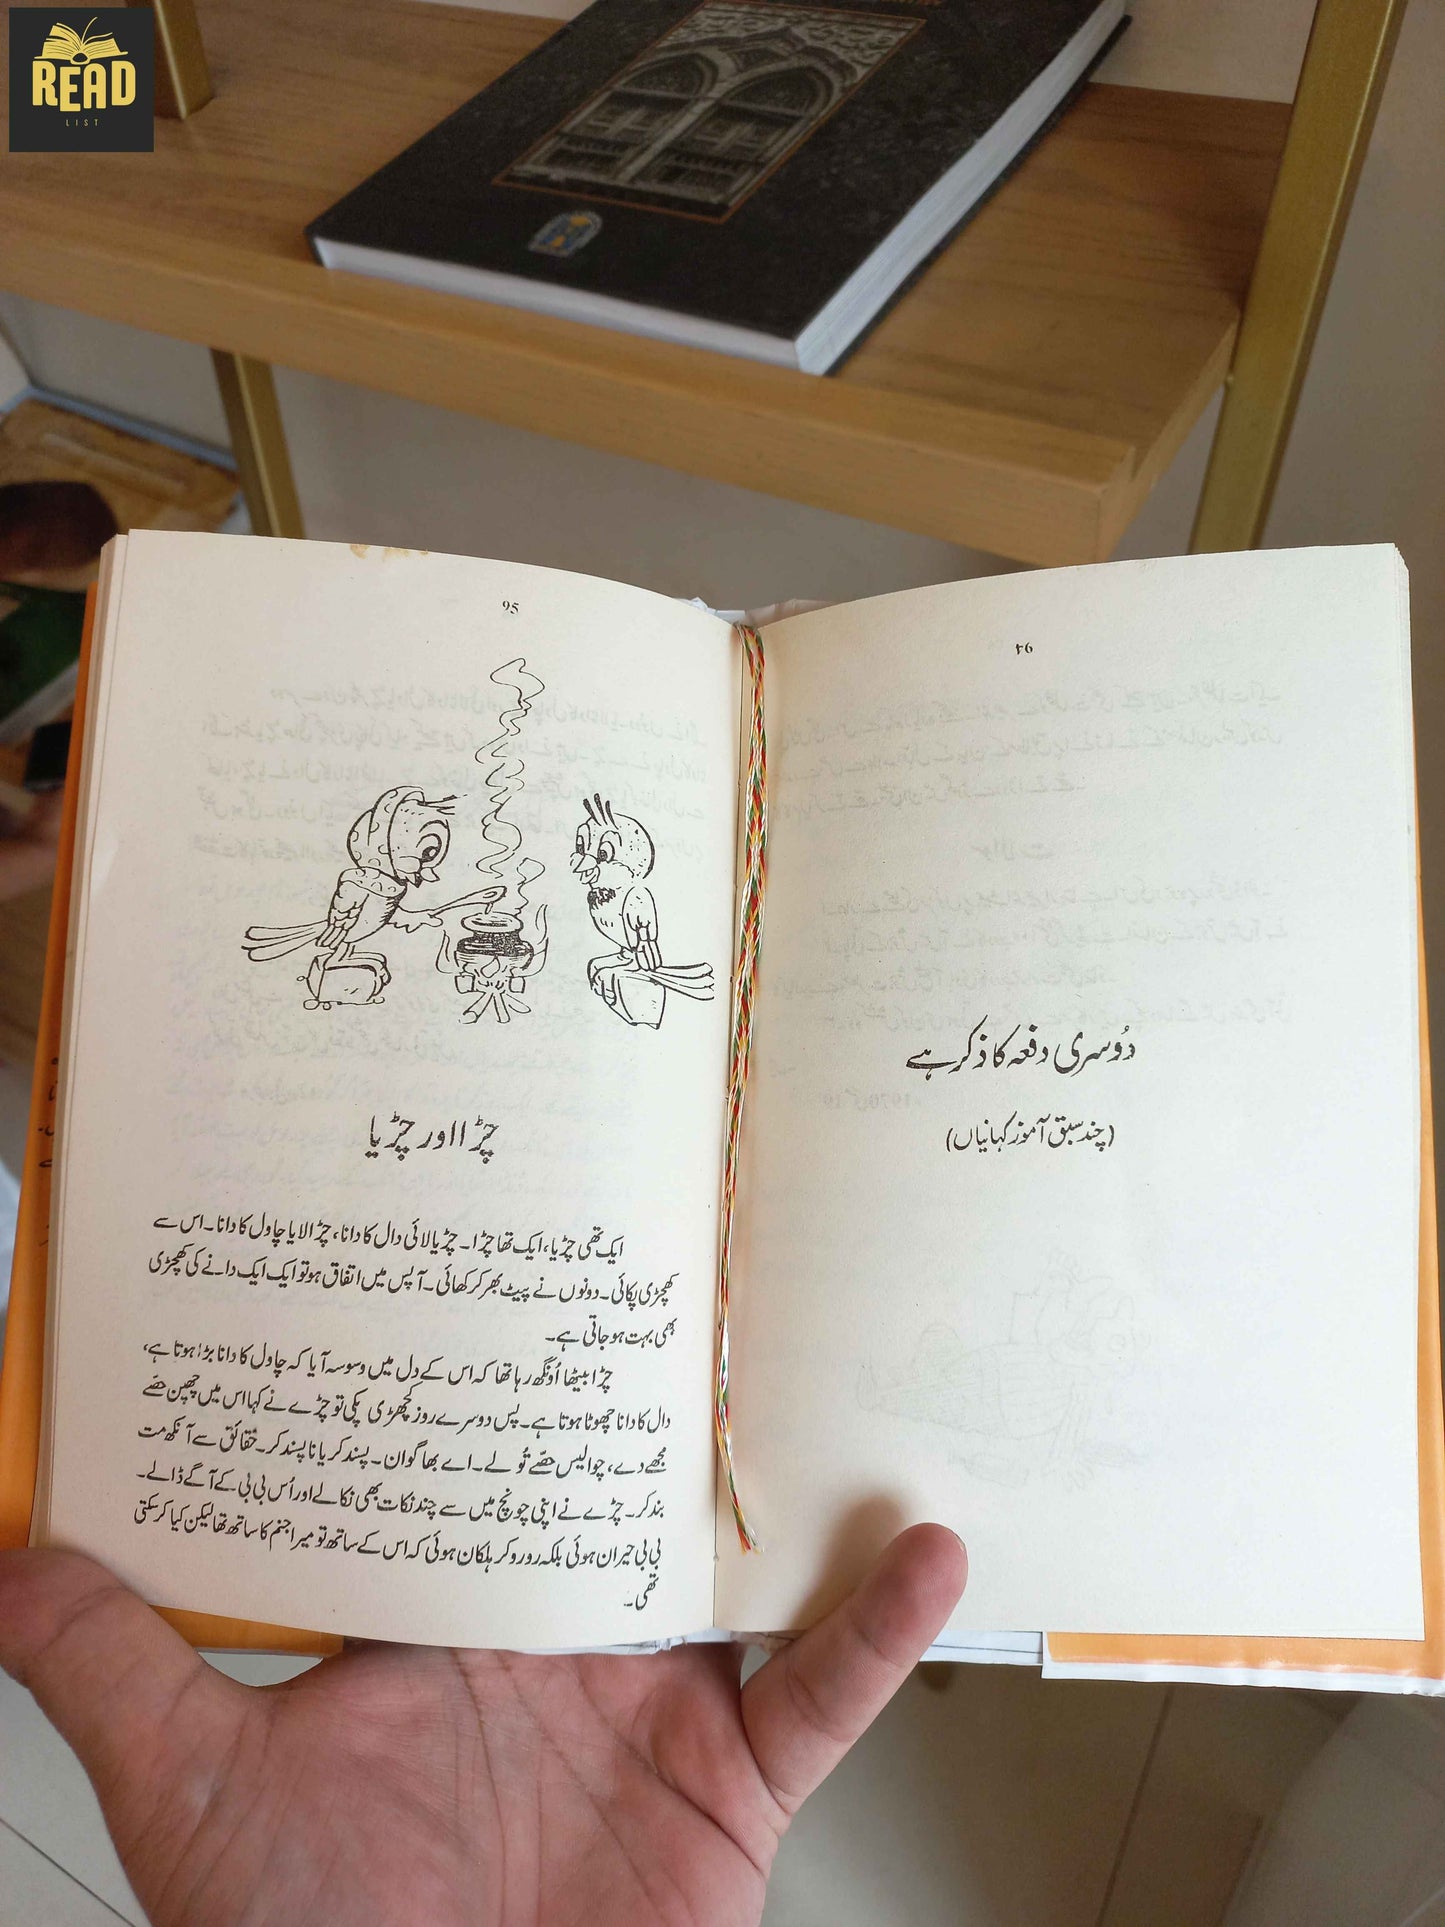 READ
LIST
۹۴
دُوسری دفعہ کا ذکر ہے
(چند سبق آموز کہانیاں)
95
چڑا اور چڑیا
ایک تھی چڑیا، ایک تھا چڑا۔ چڑیا لائی دال کا دانا، چڑا لایا چاول کا دانا۔ اس سے
کھچڑی پکائی۔ دونوں نے پیٹ بھر کر کھائی۔ آپس میں اتفاق ہو تو ایک ایک دانے کی کھچڑی
بھی بہت ہو جاتی ہے۔
چڑا بیٹھا اُونگھ رہا تھا کہ اس کے دل میں وسوسہ آیا کہ چاول کا دانا بڑا ہوتا ہے،
دال کا دانا چھوٹا ہوتا ہے۔ پس دوسرے روز کھچڑی پکی تو چڑے نے کہا اس میں چھپن حصّے
مجھے دے، چوالیس حصّے تُو لے۔ اے بھاگوان۔ پسند کر یا نا پسند کر۔ حقائق سے آنکھ مت
بند کر۔ چڑے نے اپنی چونچ میں سے چند نکات بھی نکالے اور اُس بی بی کے آگے ڈالے۔
بی بی حیران ہوئی بلکہ رو رو کر ہلکان ہوئی کہ اس کے ساتھ تو میرا جنم کا ساتھ تھا لیکن کیا کر سکتی
تھی۔